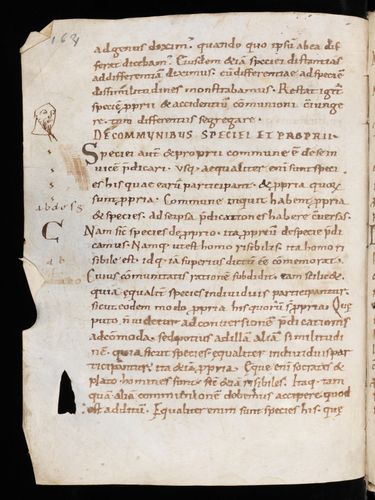 164
ad genus diximus. quando quo ipsum ab ea dif
ferat dicebam. Eiusdem etiam speciei distantias
ad differentiam diximus. cum differentiae ad speciem
dissimilitudines monstrabamus. Restat igitur
speciem proprii & accidentium communioni coniunge
re. tum differentiis segregare.
DE COMMVNIBVS SPECIEI ET PROPRII
Speciei autem & proprii commune est de se in
vicem praedicari.
aequaliter enim sunt speci
es his quae earum participant. & propria quorum
sunt propria. Commune inquit habent propria
& species. ad se ipsa praedicationes habere conversas.
Nam sicut species de proprio. ita proprium de specie praedi
camus Namque ut est homo risibilis. ita homo ri
sibile est. idque iam superius dictum esse commemorat.
Cuius communitatis rationem subdidit. eam scilicet
quia aequaliter species individuis participantur.
sicut eodem modo propria his quorum sunt propria. Que
puto non videtur ad conversionem praedicationis
accommoda. sed potius ad illam aliam similitudi
nem. quia sicut species aequaliter individuis par
ticipantur. ita etiam propria. Eque enim socrates &
plato homines sunt. sicut etiam risibiles. Itaque tam
quam aliam communionem debemus accipere quod
est additum. Equaliter enim sunt species his. que